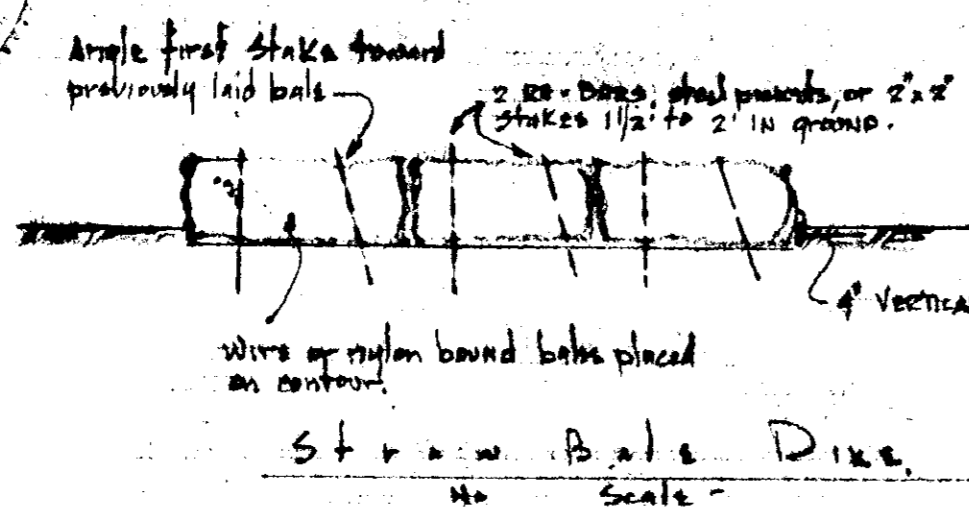 Angle first stake toward
previously laid bale
2 RE-BARS, steel pickets, or 2"x2"
stakes 1 1/2' to 2' IN ground.
4" VERTICAL
Wire or nylon bound bales placed
on contour.
Straw Bale Dike.
No Scale -